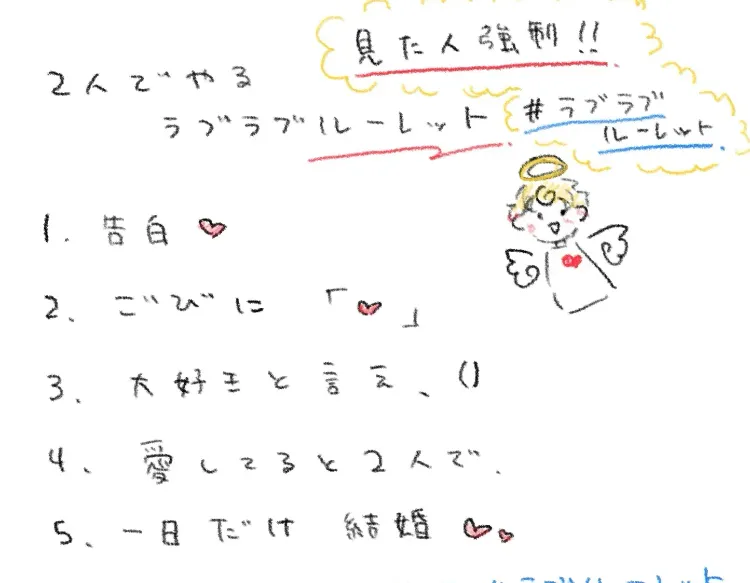 見た人強制!!
2人でやる
ラブラブルーレット
#ラブラブ
ルーレット
1. 告白 ♥
2. ごびに 「♥」
3. 大好きと言え、()
4. 愛してると2人で.
5. 一日だけ 結婚 ♥♥